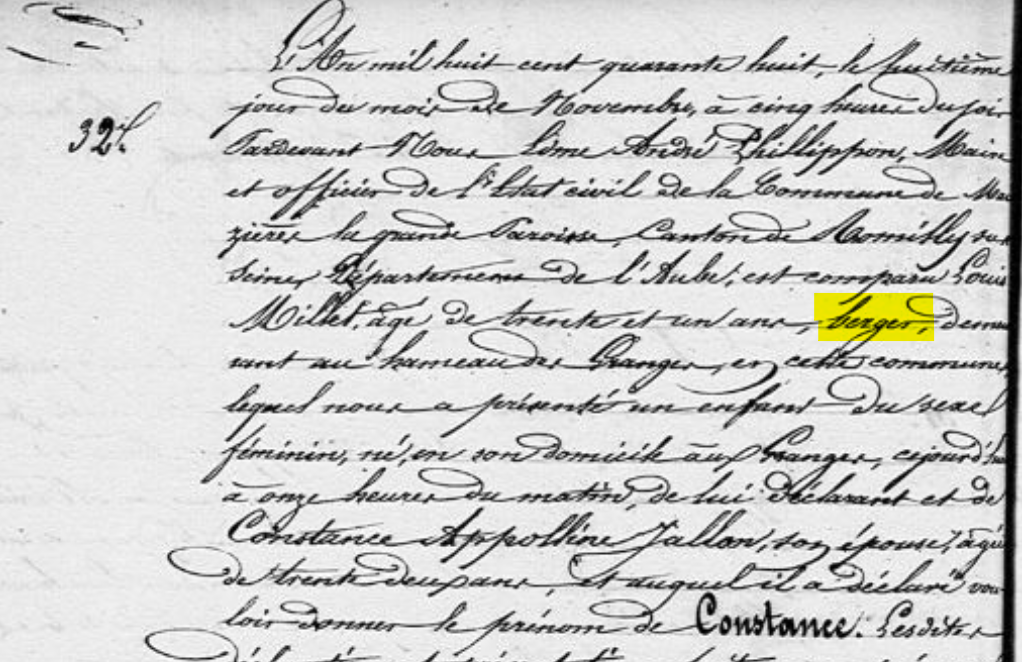 L'An mil huit cent quarante huit, le huitième
32.
jour du mois de Novembre, à cinq heures du soir
Pardevant Nous Côme André Phillippon, Maire
et officier de l'Etat civil de la Commune de
zières la grande Paroisse, Canton de Romilly sur
Seine, Département de l'Aube, est comparu Louis
Millet, âgé de trente et un ans, berger, demeu
rant au hameau des Granges, en cette commune,
lequel nous a présenté un enfant du sexe
féminin, né, en son domicile aux Granges, cejourd'hui
à onze heures du matin, de lui déclarant et de
Constance Appolline Jallon, son épouse, âgée
de trente deux ans, et auquel il a déclaré vou
loir donner le prénom de Constance. Lesdites